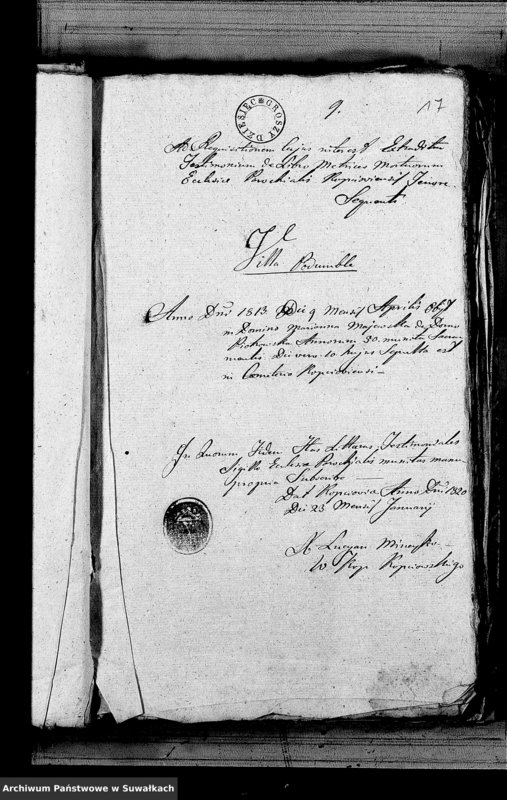 DZIESIĘC GROSZY
9.
17
Ad Requisitionem Cujus interest Extraditur
Testimonium de Libro Metrices Mortuorum
Ecclesiae Parochialis Kopciowiensis Tenore
Sequenti
Villa
Anno Dni 1813 Die 9 Mensis Aprilis Obyt
in Domino Marianna Majewska de Domo
Piotrowska Annorum 30. munita Sacra
mentis Die vero 10 hujus Sepulta est
in Cemeterio Kopciowiensi
In Quorum Fidem Has Litteras Testimoniales
Sigillo Ecclesiae Parochialis munitas manu
propria Subscribo
Dat Kopciovia Anno Dni 1820
Die 23 Mensis January
X. Lucyan
Kopciowskiego
Archiwum Państwowe w Suwałkach